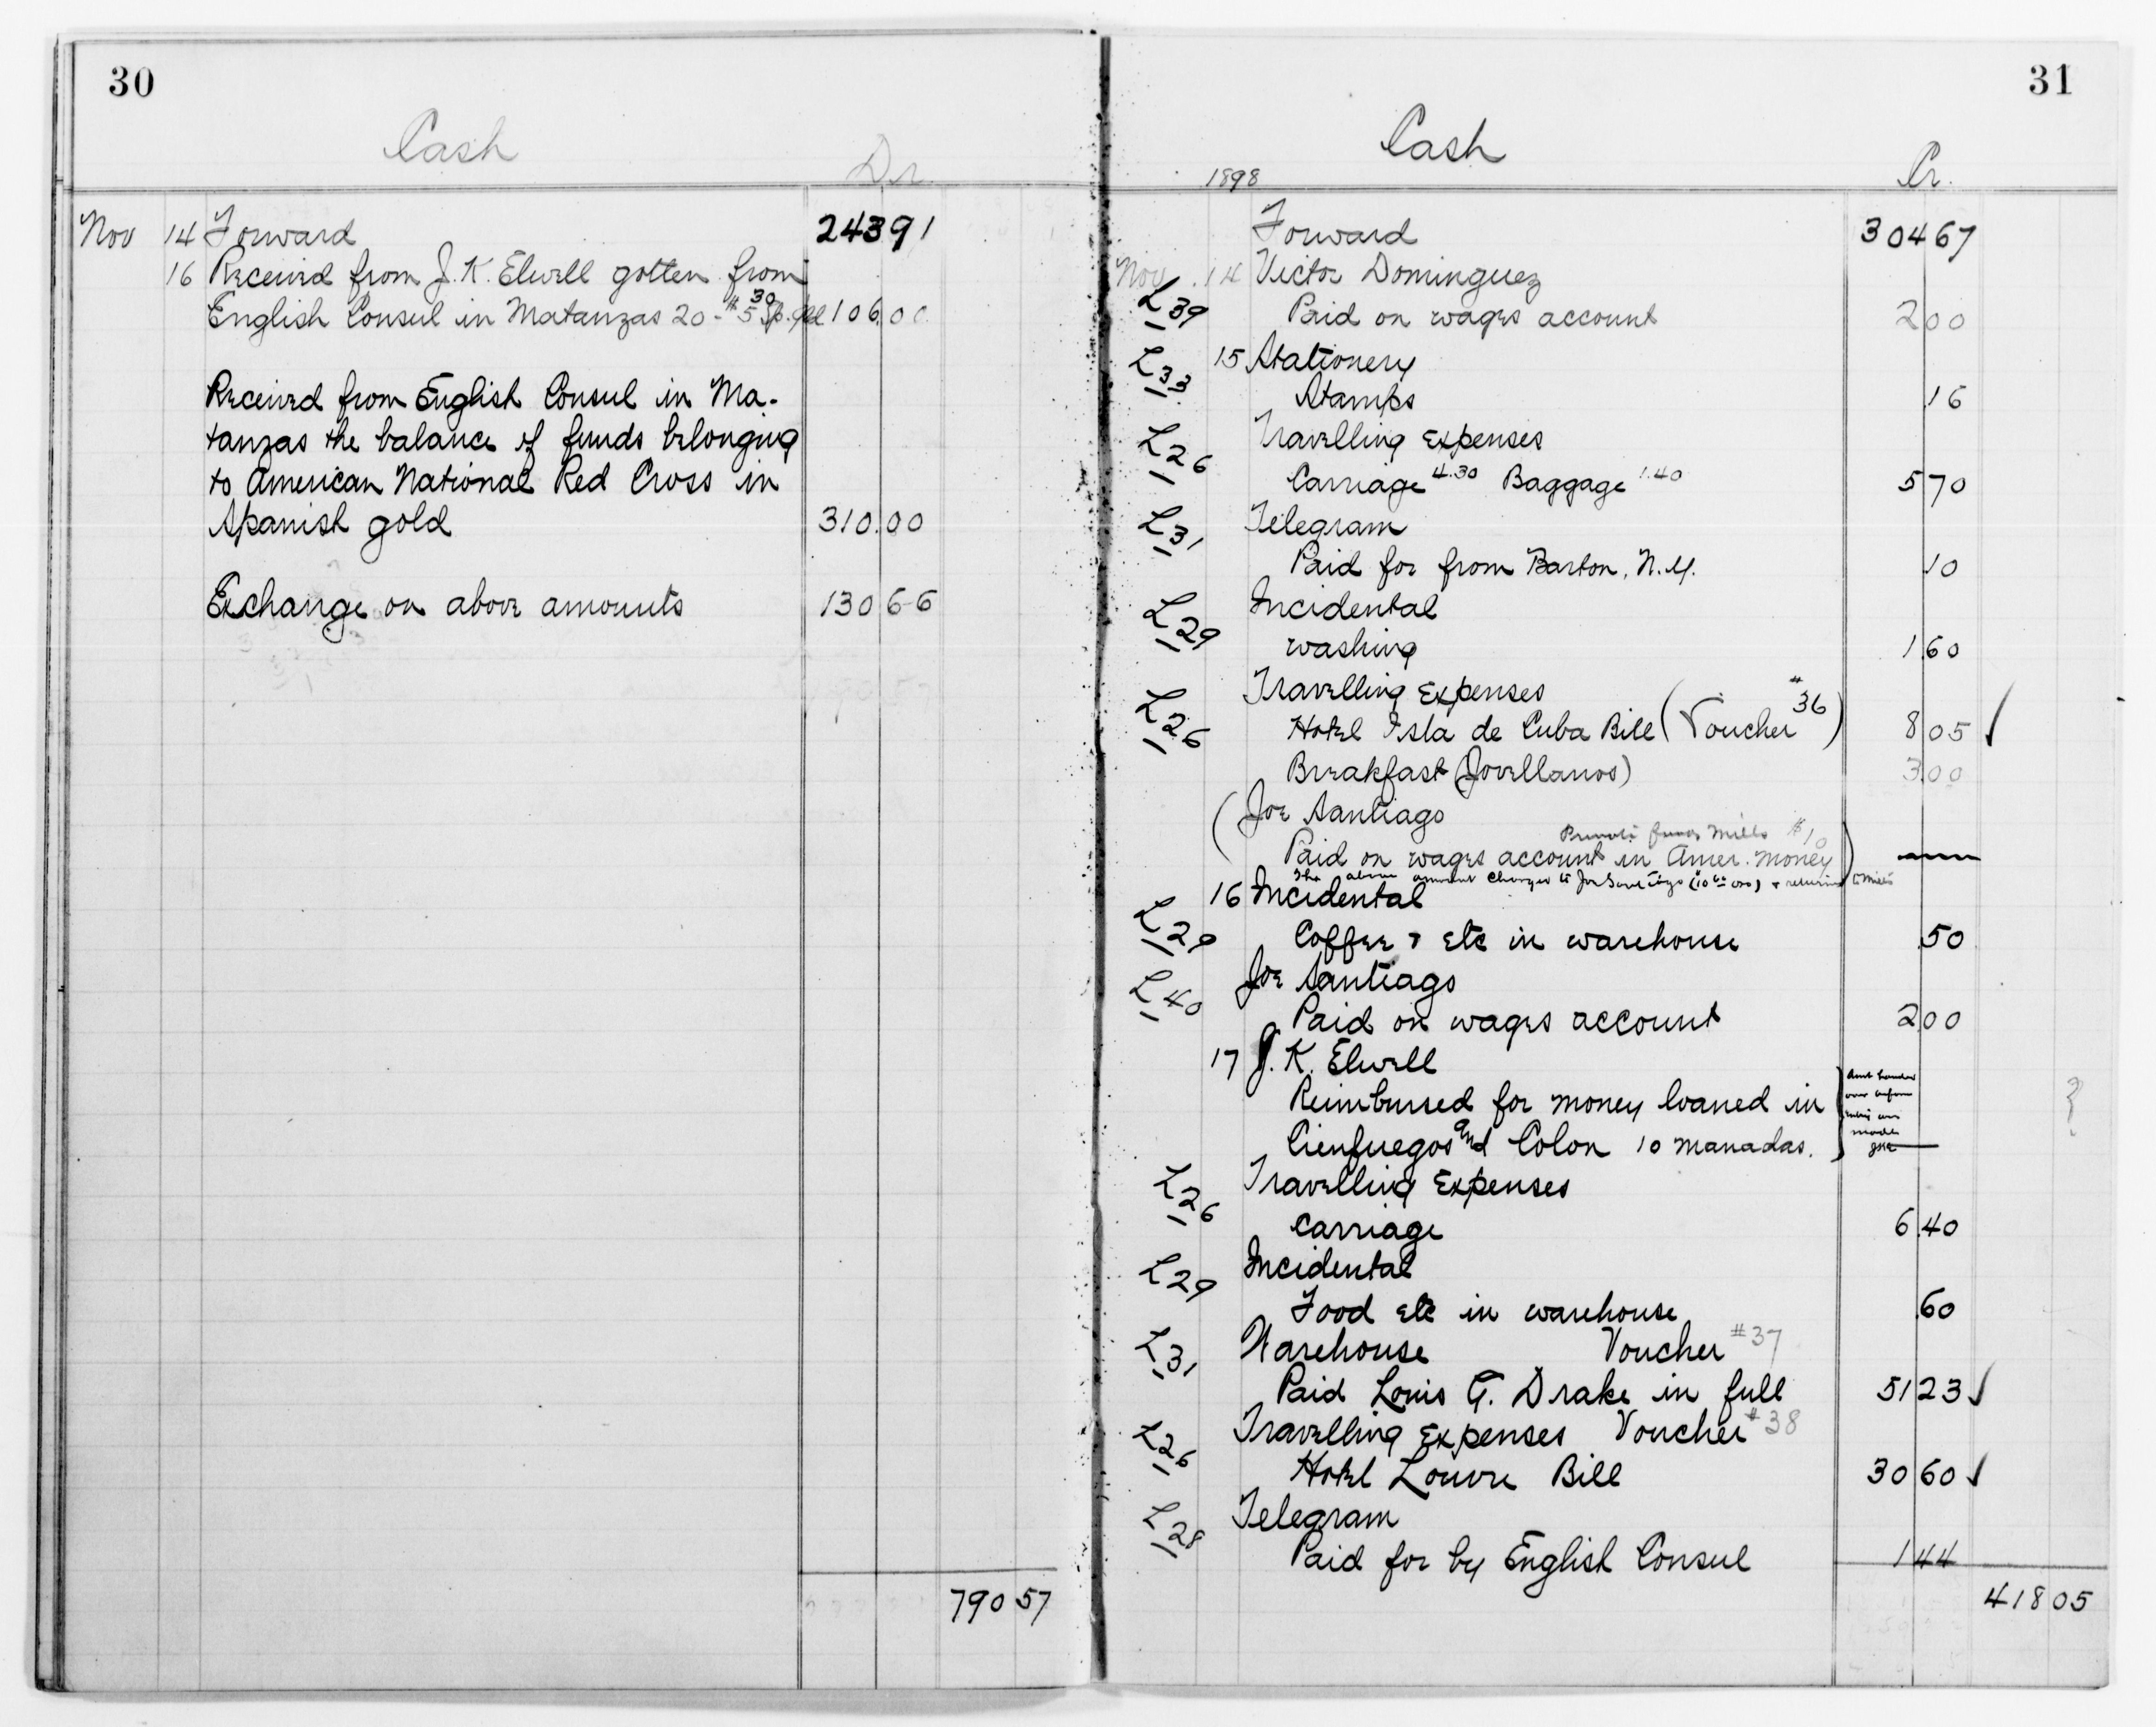 30
Cash
Dr.
Nov 14 Forward 243 91
16 Received from J. K. Elwell gotten from
English Consul in Matanzas 20 - $5.30 Sp. gld 106.00
Received from English Consul in Ma-
tanzas the balance of funds belonging
to American National Red Cross in
Spanish gold 310.00
Exchange on above amounts 130 66
790 57
31
Cash
1898 Cr.
Forward 304 67
Nov. 14 Victor Dominguez
L39 Paid on wages account 2 00
L33 15 Stationery
Stamps .16
L26 Travelling Expenses
Carriage 4.30 Baggage 1.40 5 70
L31 Telegram
Paid for from Barton, N.Y. .10
L29 Incidental
washing 1.60
L26 Travelling Expenses
Hotel Isla de Cuba Bill (Voucher #36) 8 05 ✓
Breakfast (Jovellanos) 3.00
(Joe Santiago
Private funds Mills $10
Paid on wages account in Amer. Money)
The above amount charged to Joe Santiago ($10.00) & returned to Mills
16 Incidental
L29 Coffee & etc in warehouse .50
L40 Joe Santiago
Paid on wages account 2.00
17 J. K. Elwell
Reimbursed for money loaned in
Cienfuegos and Colon 10 manadas.
Amt handed
over before
made
JKE
?
L26 Travelling Expenses
Carriage 6.40
L29 Incidental
Food etc in warehouse .60
L31 Warehouse Voucher #37
Paid Louis G. Drake in full 51 23 ✓
L26 Travelling Expenses Voucher #38
Hotel Louvre Bill 30 60 ✓
L28 Telegram
Paid for by English Consul 1 44
418 05